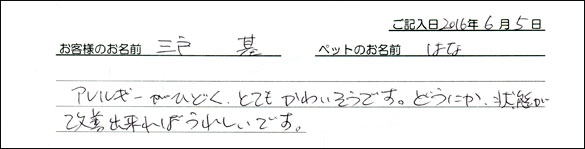 ご記入日2016年6月5日
お客様のお名前 三戸 基 ペットのお名前 はな
アレルギーがひどく、とてもかわいそうです。どうにか、状態が
改善出来ればうれしいです。